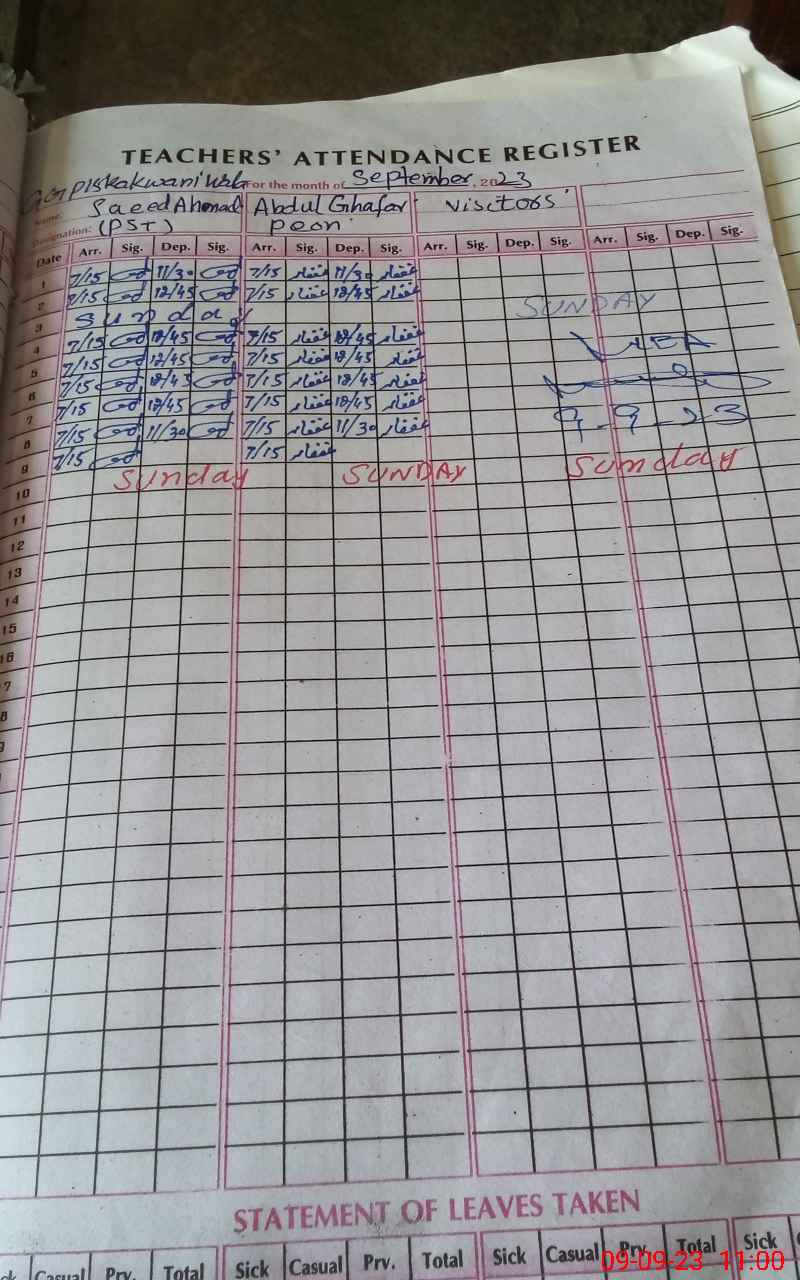 TEACHERS' ATTENDANCE REGISTER
For the month of September, 2023
Name: Saeed Ahmad Abdul Ghafar Visitors
Designation: (PST) Peon
Date Arr. Sig. Dep. Sig. Arr. Sig. Dep. Sig. Arr. Sig. Dep. Sig. Arr. Sig. Dep. Sig.
1 7/15 11/30 7/15 غفار 11/30 غفار
2 7/15 12/45 7/15 غفار 12/45 غفار SUNDAY
3 Sunday
4 7/15 12/45 7/15 غفار 12/45 غفار
5 7/15 12/45 7/15 غفار 12/45 غفار
6 7/15 12/45 7/15 غفار 12/45 غفار
7 7/15 12/45 7/15 غفار 12/45 غفار 9-9-23
8 7/15 11/30 7/15 غفار 11/30 غفار
9 7/15 7/15 غفار
10 Sunday SUNDAY Sunday
11
12
13
14
15
16
7
8
STATEMENT OF LEAVES TAKEN
Casual Prv. Total Sick Casual Prv. Total Sick Casual Prv. Total Sick
09-09-23 11:00